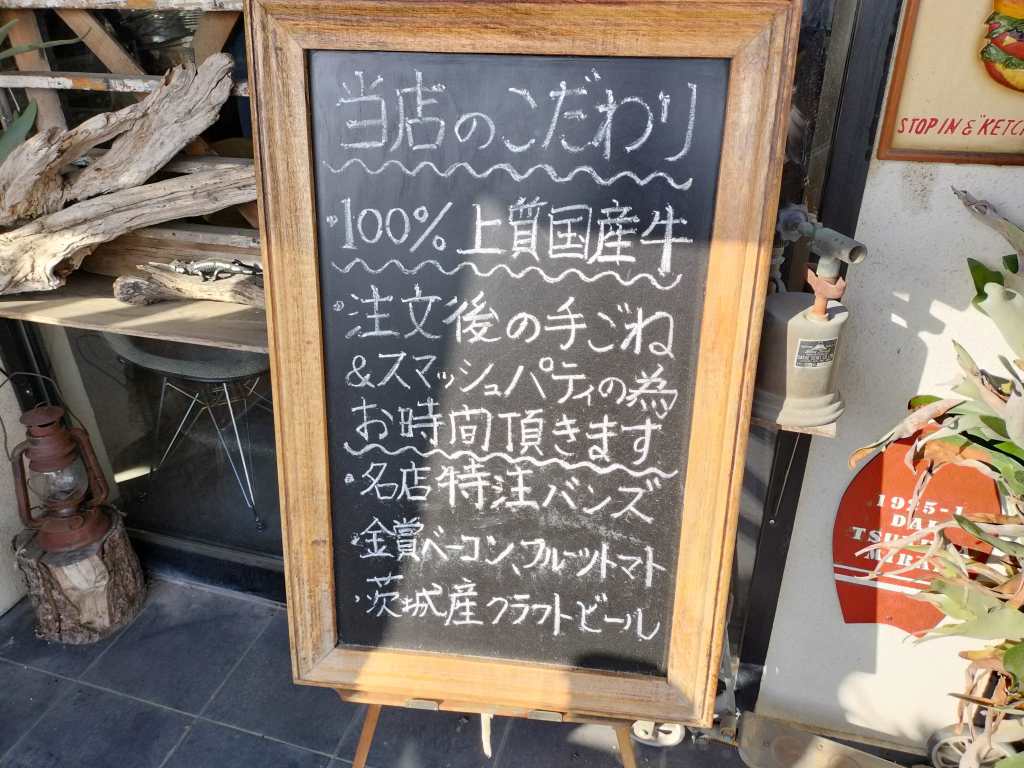 当店のこだわり
・100% 上質国産牛
・注文後の手ごね
&スマッシュパティの為
お時間頂きます
・名店特注バンズ
・金賞ベーコン、フルーツトマト
・茨城産クラフトビール
STOP IN &
1985-1